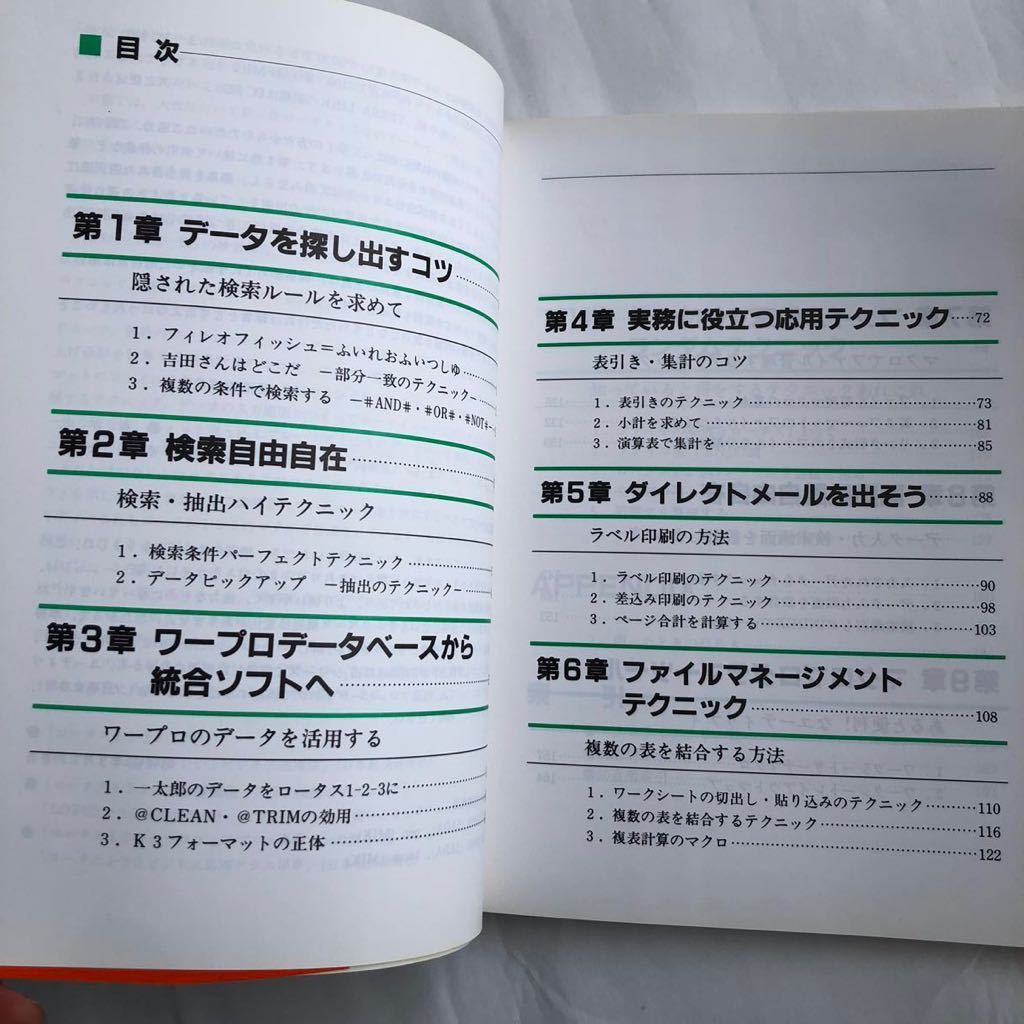 ■ 目次
第1章 データを探し出すコツ……
隠された検索ルールを求めて
1．フィレオフィッシュ＝ふいれおふいつしゆ……
2．吉田さんはどこだ －部分一致のテクニック－
3．複数の条件で検索する －#AND#・#OR#・#NOT#－
第2章 検索自由自在……
検索・抽出ハイテクニック
1．検索条件パーフェクトテクニック……
2．データピックアップ －抽出のテクニック－
第3章 ワープロデータベースから
統合ソフトへ
ワープロのデータを活用する
1．一太郎のデータをロータス1-2-3に……
2．@CLEAN・@TRIMの効用……
3．K3フォーマットの正体……
第4章 実務に役立つ応用テクニック……72
表引き・集計のコツ
1．表引きのテクニック……73
2．小計を求めて……81
3．演算表で集計を……85
第5章 ダイレクトメールを出そう……88
ラベル印刷の方法
1．ラベル印刷のテクニック……90
2．差込み印刷のテクニック……98
3．ページ合計を計算する……103
第6章 ファイルマネージメント
テクニック……108
複数の表を結合する方法
1．ワークシートの切出し・貼り込みのテクニック……110
2．複数の表を結合するテクニック……116
3．複表計算のマクロ……122